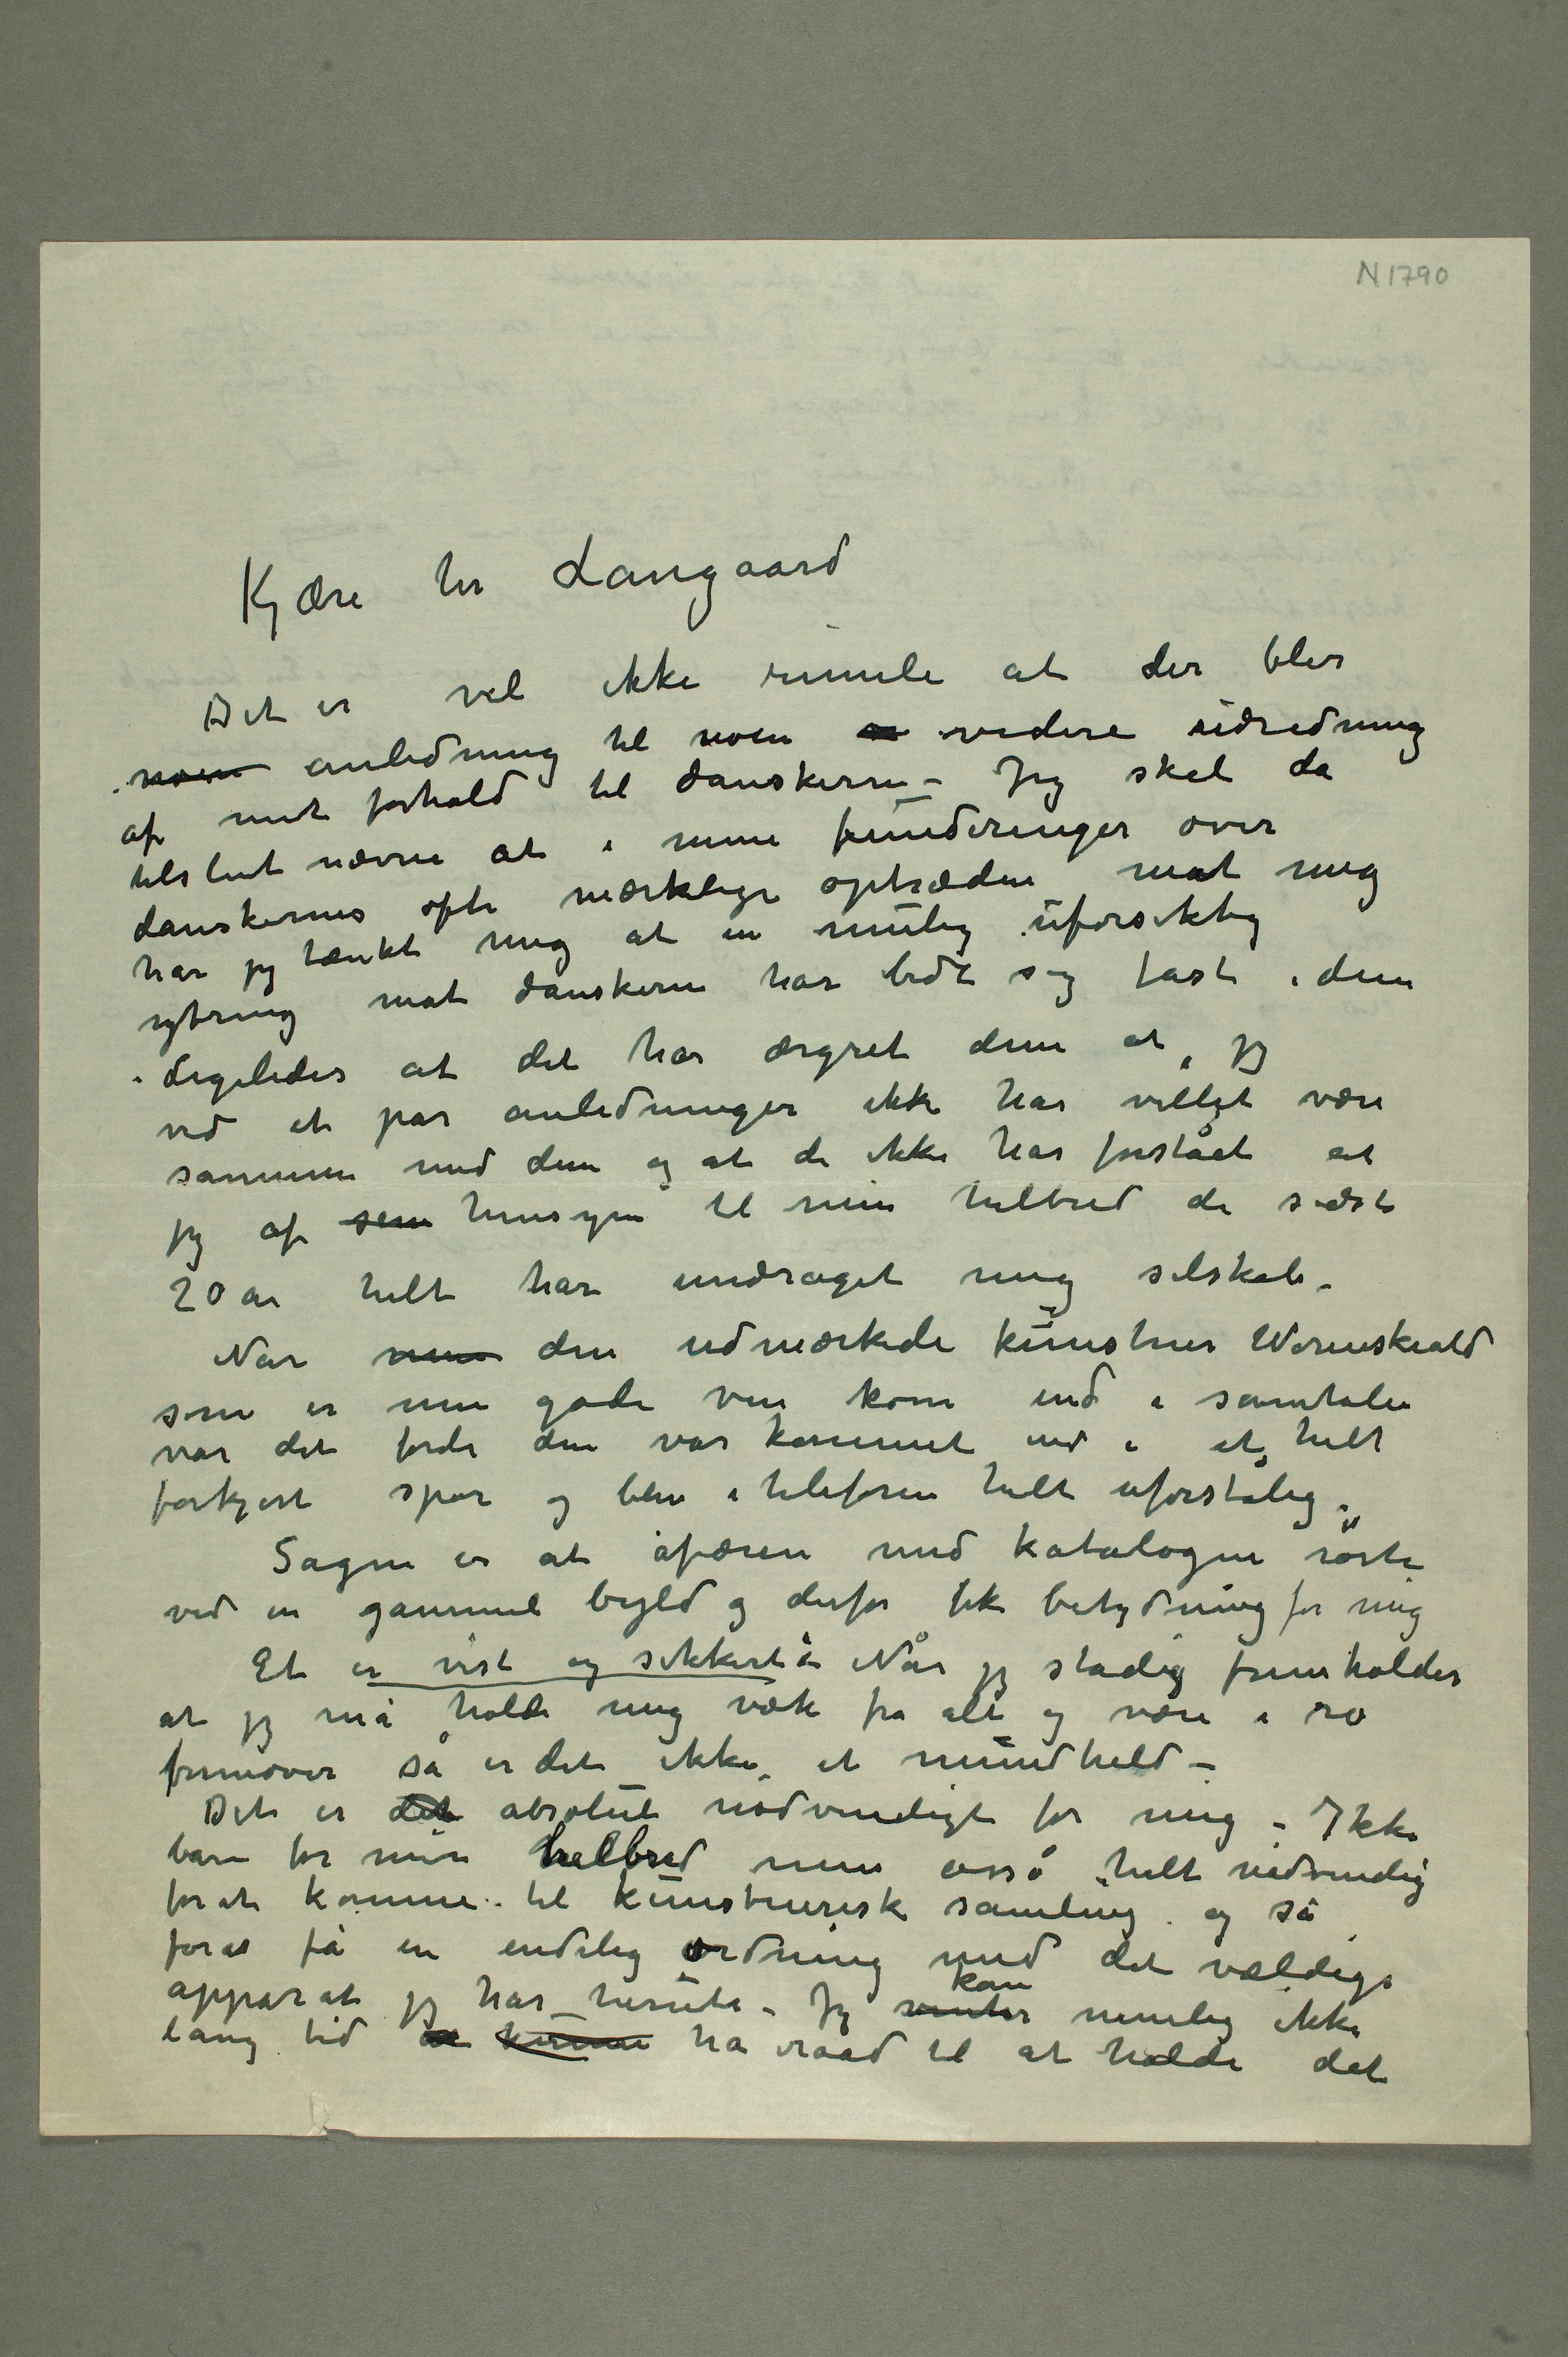 N 1790
Kjære hr Langgaard
Det er vel ikke rimeli at der blir
noen anledning til noen videre udredning
af mit forhold til danskerne – Jeg skal da
tilslut nævne at i mine funderinger over
danskernes ofte mærkelige optræden mot mig
har jeg tænkt mig at en mulig uforsiktig
ytring mot danskerne har bidt sig fast i dem
– Ligeledes at det har ærgret dem at jeg
ved et par anledninger ikke har villet være
sammen med dem og at de ikke har forståt at
jeg af sem hensyn til min helbred de sidste
20 år helt har undraget mig selskab –
Når men den udmærkede kunstner Wormskiold
som er min gode ven kom ind i samtalen
var det fordi den var kommet ind i et helt
forkjert spor og blev i telefonen helt uforståelig.
Sagen er at afæren med katalogen rørte
ved en gammel byld og derfor fik betydning for mig
Et er vist og sikkert: Når jeg stadig fremholder
at jeg må holde mig væk fra alt og være i ro
fremover så er det ikke et mundheld –
Det er det absolut nødvendigt for mig – Ikke
bare for min helbred men også helt nødvendig
forat komme til kunstnerisk samling og så
forat få en endelig ordning med det vældige
apparat jeg har herute – Jeg venter kan nemlig ikke
lang tid kunne ha raad til at holde det